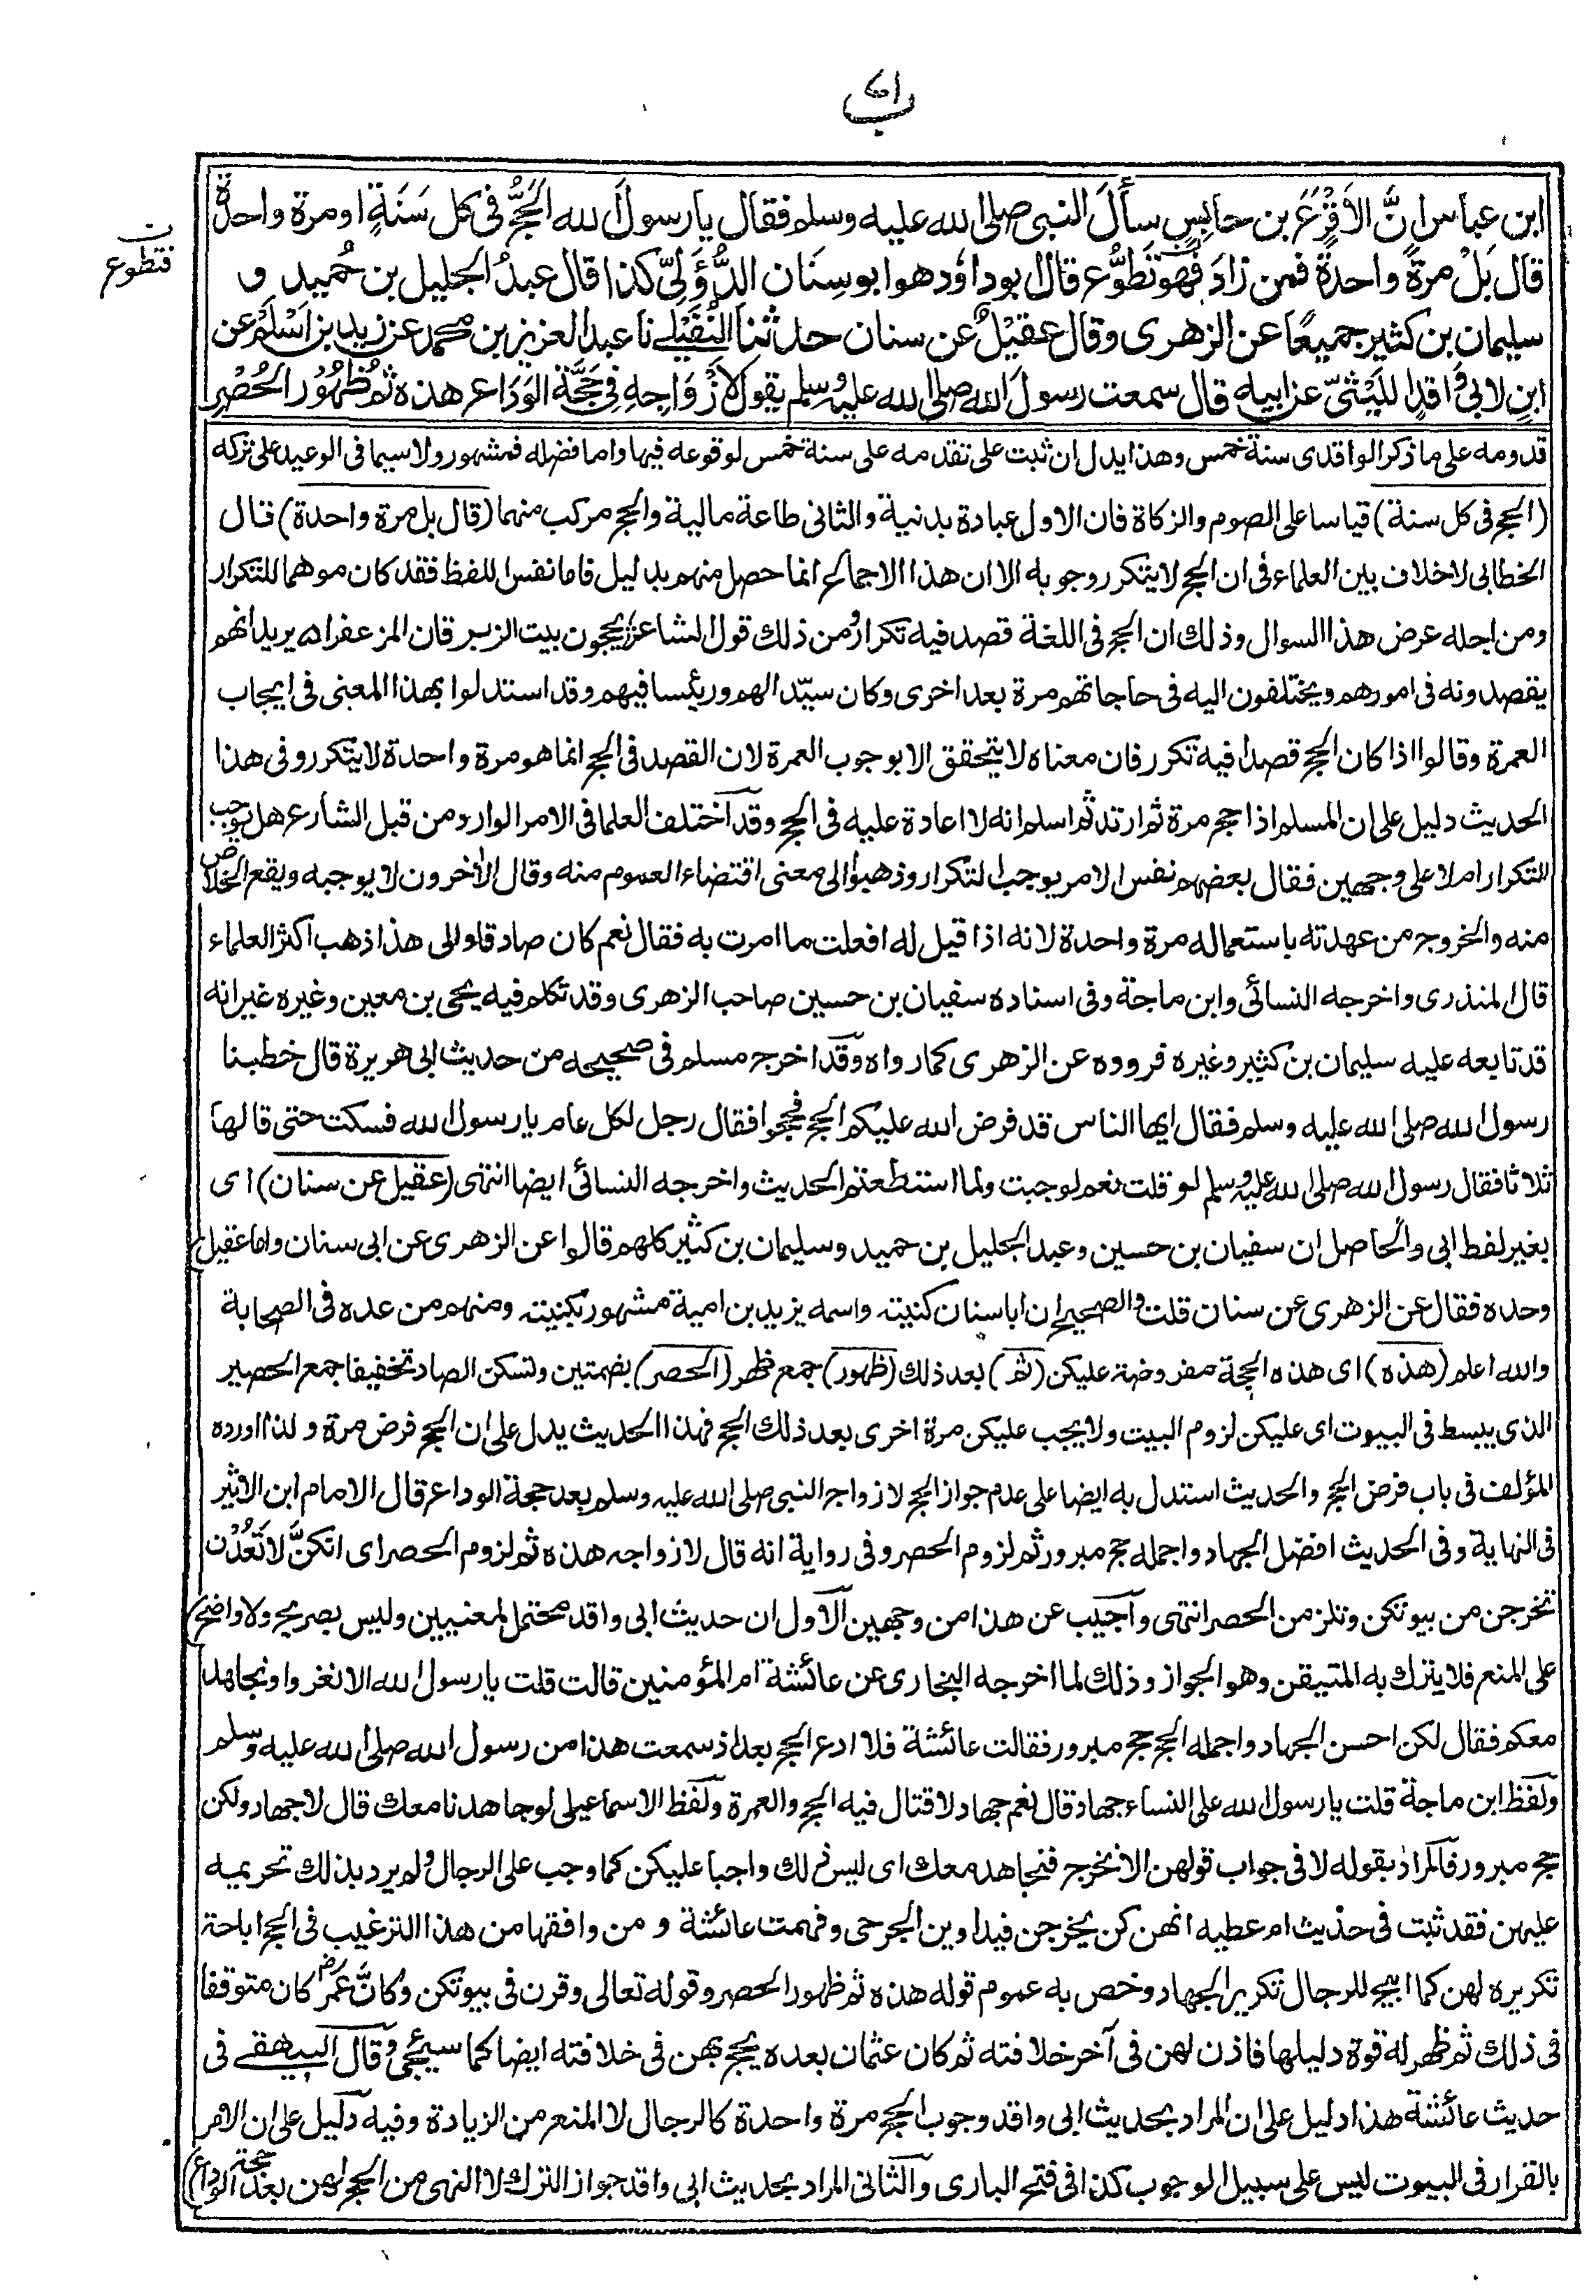 ابن عباس انَّ الاَقْرَعَ بن حابِسٍ سأَلَ النبى صلى الله عليه وسلم فقال يا رسولَ الله الحَجُّ فى كل سَنَةٍ او مرة واحدة
فتطوع
قال بَلْ مرةً واحدةً فمن زادَ فهو تَطَوُّع قال ابو داوٗد هو ابو سِنَان الدُّؤَلِىّ كذا قال عبدُ الجليل بن حُميد و
سليمان بن كثير جميعًا عن الزهرى وقال عقيْلٌ عن سنان حدثنا النُّفَيْلى نا عبد العزيز بن محمد عن زيد بن اَسْلَمَ عن
ابنٍ لابى وَاقدٍ اللَّيْثىّ عن ابيه قال سمعت رسولَ الله صلى الله عليه وسلم يقول لاَزْوَاجِهِ فى حَجَّة الوَدَاع هذه ثم ظُهُوْرَ الحُصْرِ
قدومه على ما ذكر الواقدى سنة خمس وهذا يدل ان ثبت على تقدمه على سنة خمس لوقوعه فيها واما فضله فمشهور ولا سيما فى الوعيد على تركه
(الحج فى كل سنة) قياسا على الصوم والزكاة فان الاول عبادة بدنية والثانى طاعة مالية والحج مركب منهما (قال بل مرة واحدة) قال
الخطابى لا خلاف بين العلماء فى ان الحج لا يتكرر وجوبه الا ان هذا الاجماع انما حصل منهم بدليل فاما نفس اللفظ فقد كان موهما للتكرار
ومن اجله عرض هذا السوال وذلك ان الحج فى اللغة قصد فيه تكرار ومن ذلك قول الشاعر يحجون بيت الزبرقان المزعفرا يريد انهم
يقصدونه فى امورهم ويختلفون اليه فى حاجاتهم مرة بعد اخرى وكان سيّدا لهم ورئيسا فيهم وقد استدلوا بهذا المعنى فى ايجاب
العمرة وقالوا اذا كان الحج قصدا فيه تكرر فان معناه لا يتحقق الا بوجوب العمرة لان القصد فى الحج انما هو مرة واحدة لا يتكرر وفى هذا
الحديث دليل على ان المسلم اذا حج مرة ثم ارتد ثم اسلم انه لا اعادة عليه فى الحج وقد اختلف العلما فى الامر الوارد من قبل الشارع هل يوجب
التكرار ام لا على وجهين فقال بعضهم نفس الامر يوجب التكرار وذهبوا الى معنى اقتضاء العموم منه وقال الآخرون لا يوجبه ويقع الخلاص
منه والخروج من عهدته باستعماله مرة واحدة لانه اذا قيل له افعلت ما امرت به فقال نعم كان صادقا والى هذا ذهب اكثر العلماء
قال المنذرى واخرجه النسائى وابن ماجة وفى اسناده سفيان بن حسين صاحب الزهرى وقد تكلم فيه يحيى بن معين وغيره غير انه
قد تابعه عليه سليمان بن كثير وغيره فرووه عن الزهرى كما رواه وقد اخرج مسلم فى صحيحه من حديث ابى هريرة قال خطبنا
رسول الله صلى الله عليه وسلم فقال ايها الناس قد فرض الله عليكم الحج فحجوا فقال رجل لكل عام يا رسول الله فسكت حتى قالها
ثلاثا فقال رسول الله صلى الله عليه وسلم لو قلت نعم لوجبت ولما استطعتم الحديث واخرجه النسائى ايضا انتهى (عقيل عن سنان) اى
بغير لفظ ابى والحاصل ان سفيان بن حسين وعبد الجليل بن حميد وسليمان بن كثير كلهم قالوا عن الزهرى عن ابى سنان واما عقيل
وحده فقال عن الزهرى عن سنان قلت والصحيح ان ابا سنان كنيته واسمه يزيد بن امية مشهور بكنيته ومنهم من عده فى الصحابة
والله اعلم (هذه) اى هذه الحجة مفروضة عليكن (ثم) بعد ذلك (ظهور) جمع ظهر (الحصر) بضمتين وتسكن الصاد تخفيفا جمع الحصير
الذى يبسط فى البيوت اى عليكن لزوم البيت ولا يجب عليكن مرة اخرى بعد ذلك الحج فهذا الحديث يدل على ان الحج فرض مرة ولذا اورده
المؤلف فى باب فرض الحج والحديث استدل به ايضا على عدم جواز الحج لازواج النبى صلى الله عليه وسلم بعد حجة الوداع قال الامام ابن الاثير
فى النهاية وفى الحديث افضل الجهاد واجمله حج مبرور ثم لزوم الحصر وفى رواية انه قال لازواجه هذه ثم لزوم الحصر اى انكنَّ لا تَعُدْن
تخرجن من بيوتكن وتلزمن الحصر انتهى وآجيب عن هذا من وجهين الاول ان حديث ابى واقد محتمل لمعنيين وليس بصريح ولا واضح
على المنع فلا يترك به المتيقن وهو الجواز وذلك لما اخرجه البخارى عن عائشة ام المؤمنين قالت قلت يا رسول الله الا نغزو او نجاهد
معكم فقال لكن احسن الجهاد واجمله الحج حج مبرور فقالت عائشة فلا ادع الحج بعد اذ سمعت هذا من رسول الله صلى الله عليه وسلم
ولفظ ابن ماجة قلت يا رسول الله على النساء جهاد قال نعم جهاد لا قتال فيه الحج والعمرة ولفظ الاسماعيلى لو جاهدنا معك قال لا جهاد ولكن
حج مبرور فالمراد بقوله لا فى جواب قولهن الا نخرج فنجاهد معك اى ليس ذلك واجبا عليكن كما وجب على الرجال ولم يرد بذلك تحريمه
عليهن فقد ثبت فى حديث ام عطيه انهن كن يخرجن فيداوين الجرحى وفهمت عائشة و من وافقها من هذا الترغيب فى الحج اباحة
تكريره لهن كما ابيح للرجال تكرير الجهاد وخص به عموم قوله هذه ثم ظهور الحصر وقوله تعالى وقرن فى بيوتكن وكانَّ عمر رض كان متوقفا
فى ذلك ثم ظهر له قوة دليلها فاذن لهن فى آخر خلافته ثم كان عثمان بعده يحج بهن فى خلافته ايضا كما سيجئى وقال البيهقى فى
حديث عائشة هذا دليل على ان المراد بحديث ابى واقد وجوب الحج مرة واحدة كالرجال لا المنع من الزيادة وفيه دليل على ان الامر
بالقرار فى البيوت ليس على سبيل الوجوب كذا فى فتح البارى والثانى المراد بحديث ابى واقد جواز الترك لا النهى من الحج لهن بعد حجة الوداع